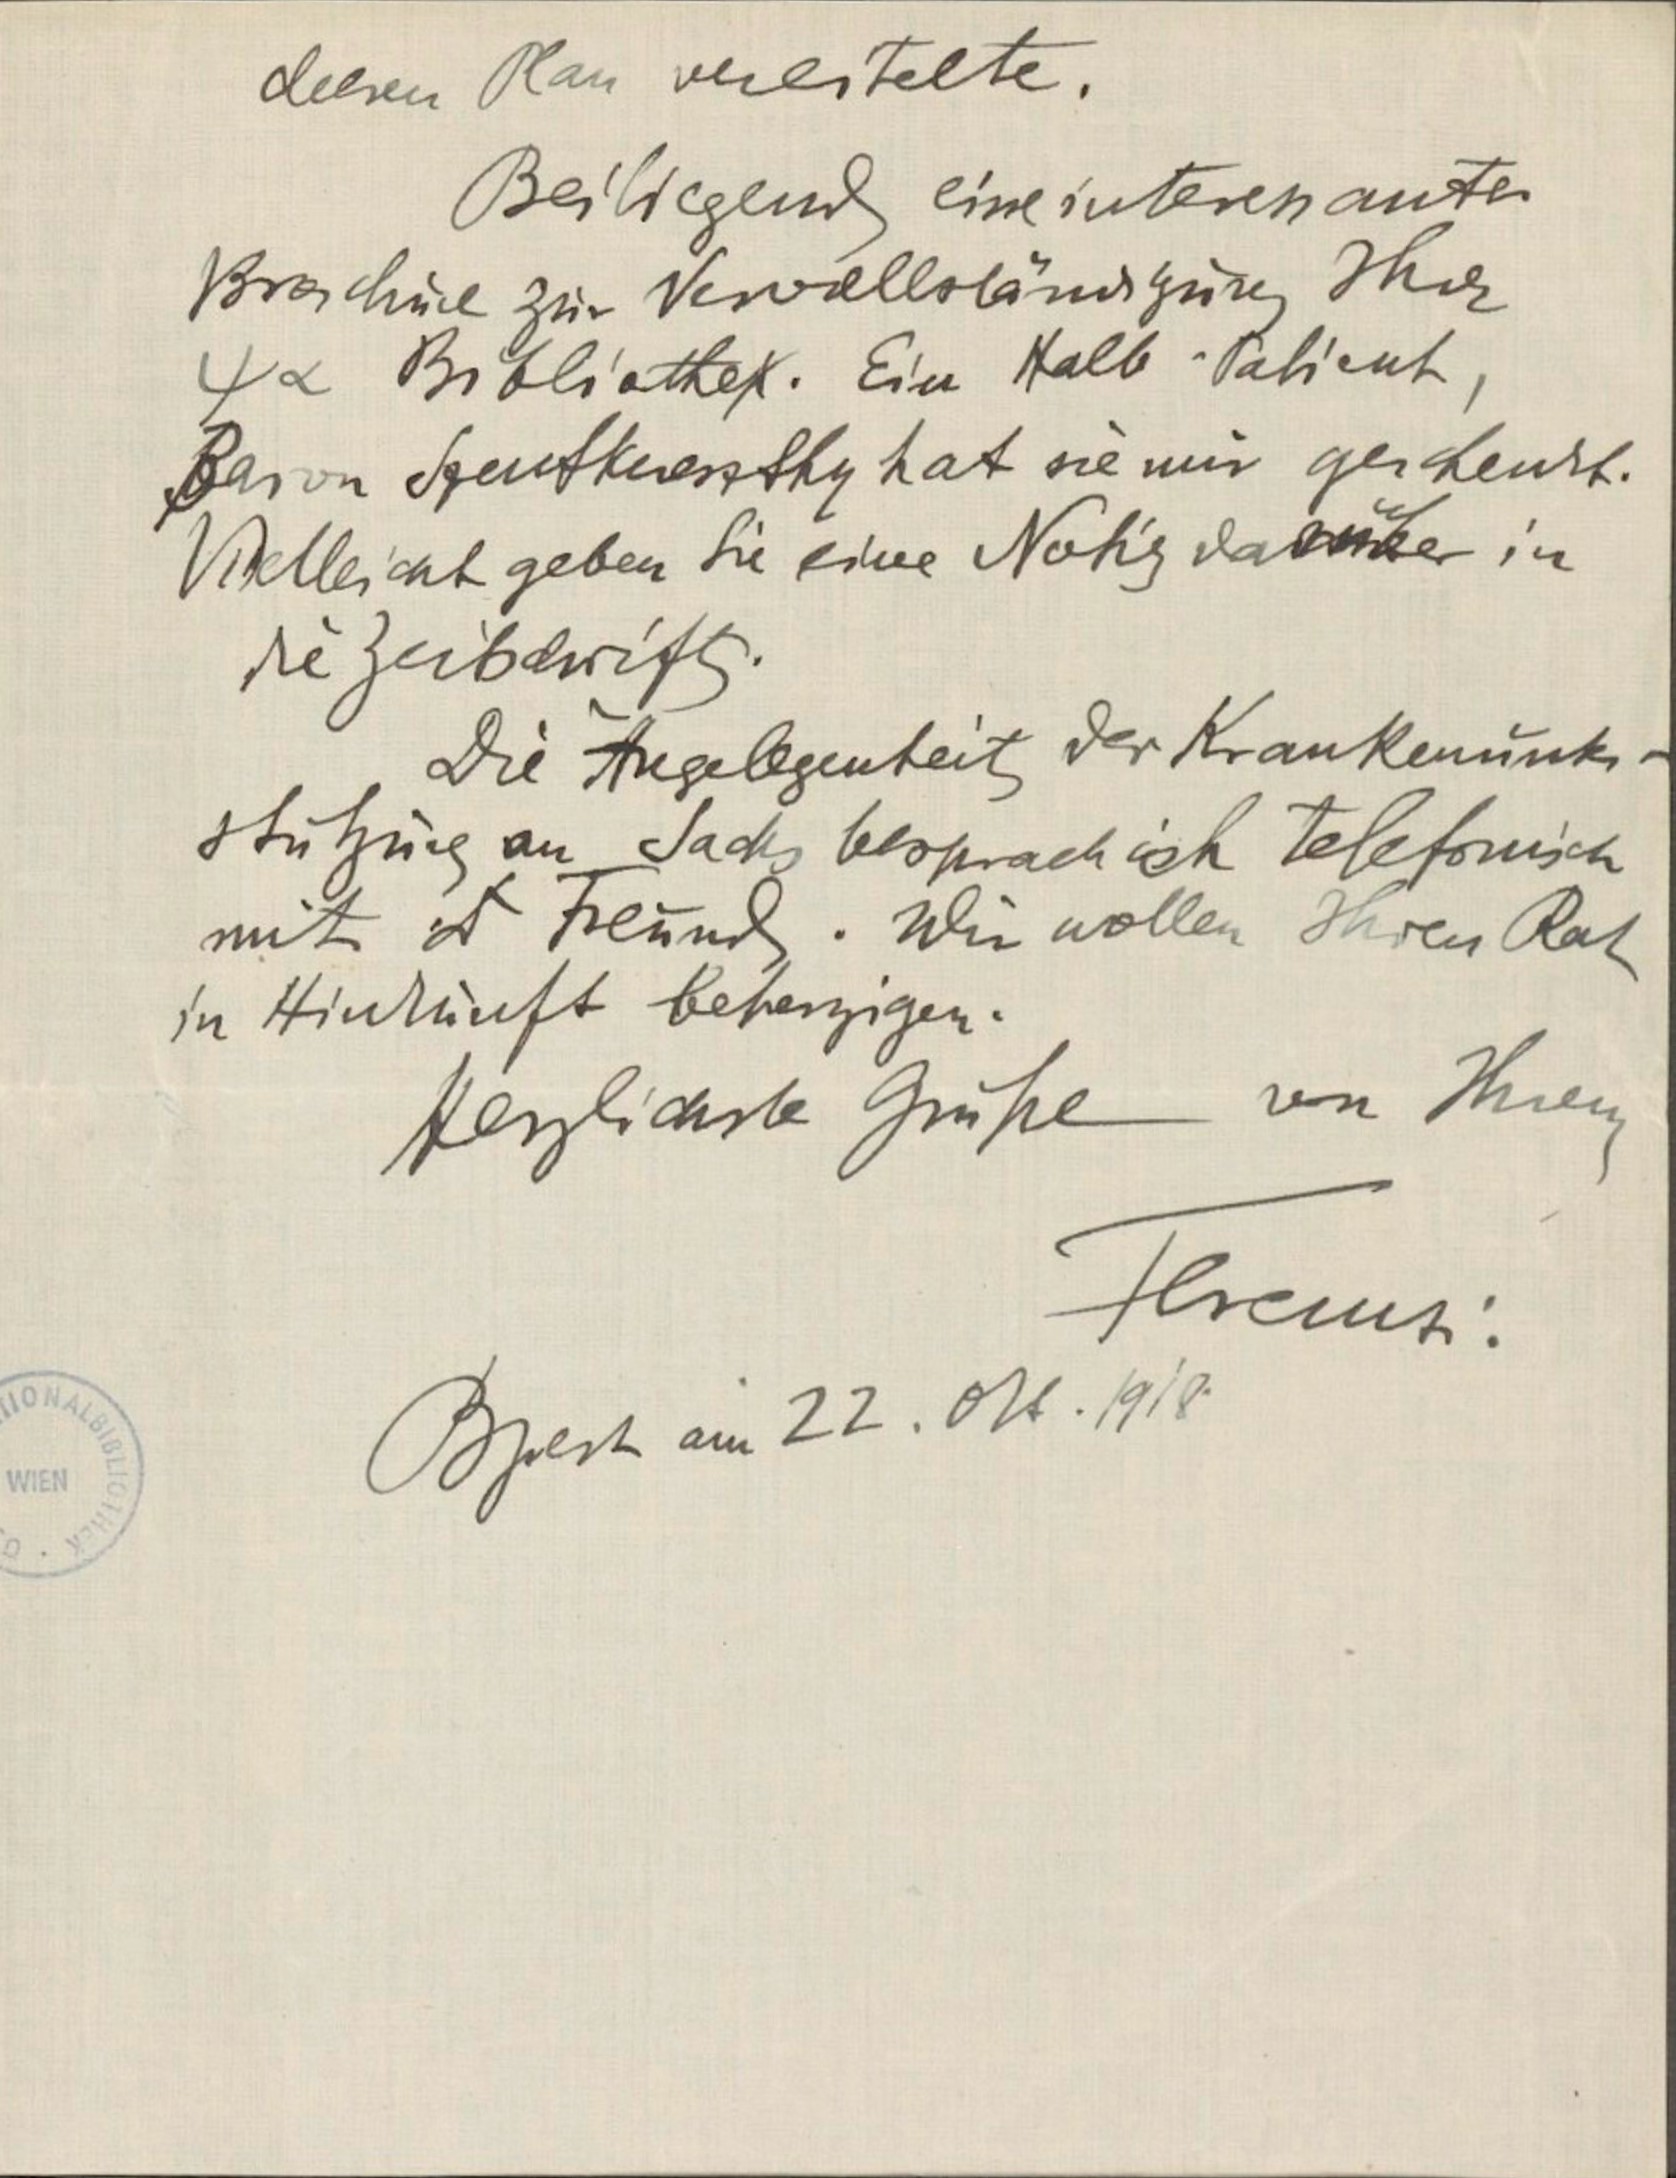 diesen Plan vereitelte.
Beiliegend eine interessante
Broschüre zur Vervollständigung Ihrer
ψα Bibliothek. Ein Halb-Patient,
Baron Szentkereszthy hat sie mir geschenkt.
Vielleicht geben Sie eine Notiz darüber in
die Zeitschrift.
Die Angelegenheit der Krankenunter-
stützung an Sachs besprach ich telefonisch
mit Freund. Wir wollen Ihren Rat
in Hinkunft beherzigen.
Herzlichste Grüße von Ihrem
Ferenczi.
Bpest am 22. Okt. 1918
NATIONALBIBLIOTHEK
WIEN